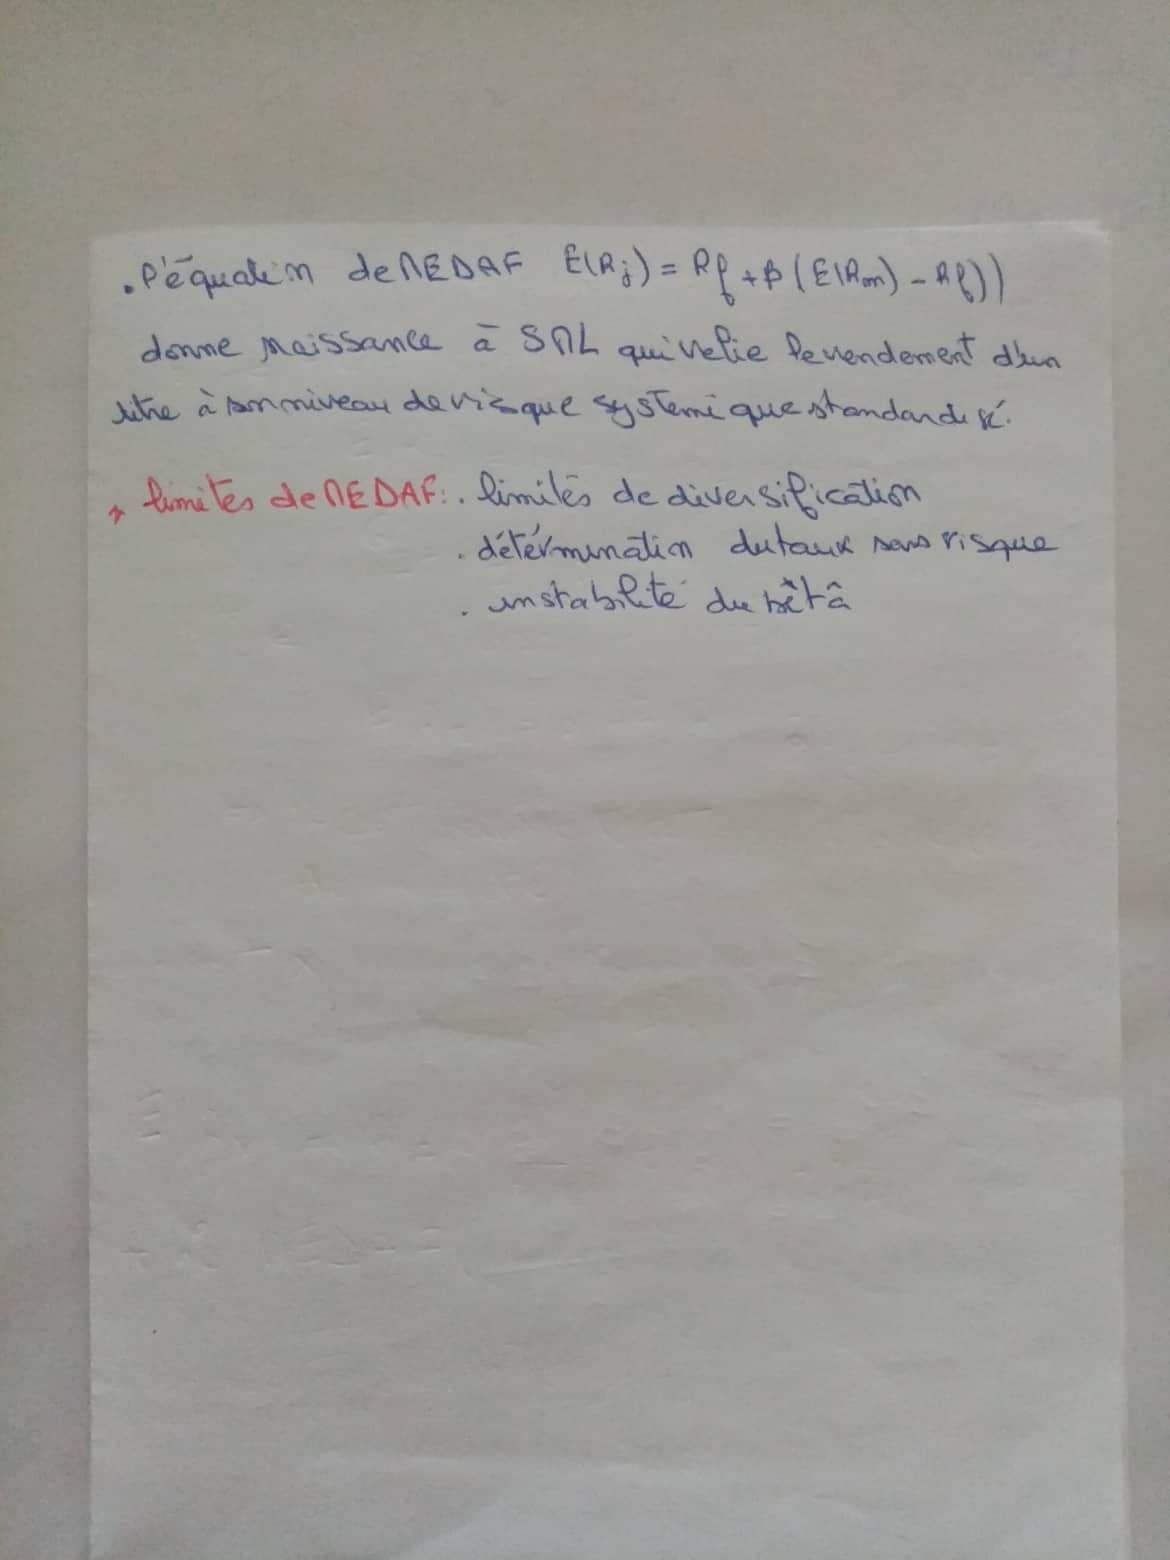 . l'équation de MEDAF E(Rj) = Rf + β (E(Rm) - Rf))
donne naissance à SML qui relie le rendement d'un
titre à son niveau de risque systemique standardisé.
→ limites de MEDAF: . limites de diversification
. détérmination du taux sans risque
. instabilité du bêtâ